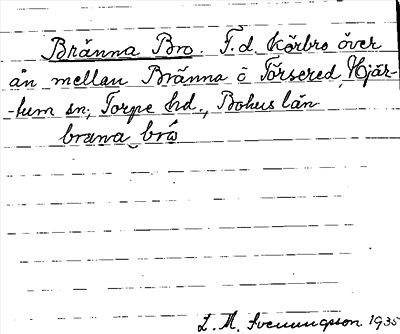 Bränna Bro. F.d. Körbro över
ån mellan Bränna o Torsered, Hjär-
-tum sn; Torpe hd., Bohus län
brana brô
L. M. Svenungsson 1935